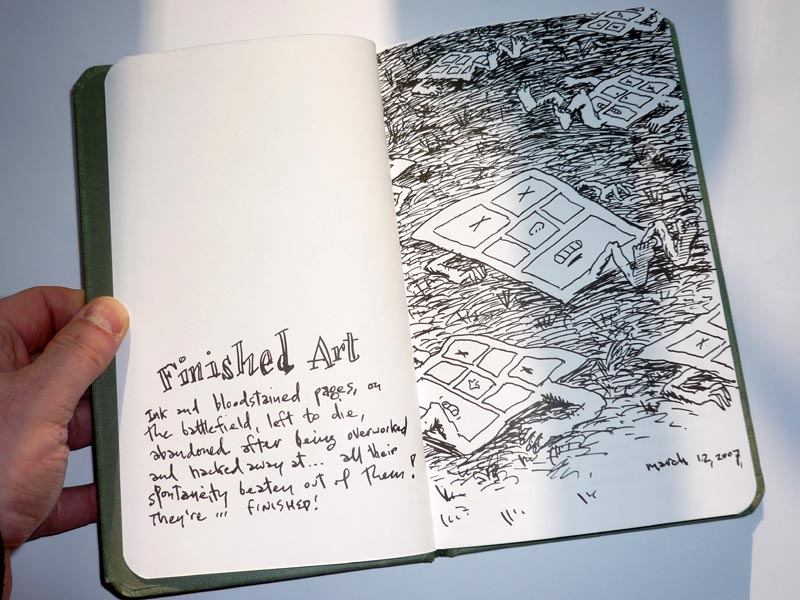 Finished Art
Ink and bloodstained pages, on
the battlefield, left to die,
abandoned after being overworked
and hacked away at... all their
spontaneity beaten out of them!
They're... FINISHED!
march 12, 2007